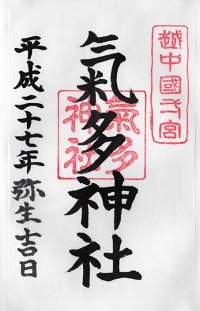 越中國一宮
氣多神社
氣多
神社
平成二十七年 弥生吉日